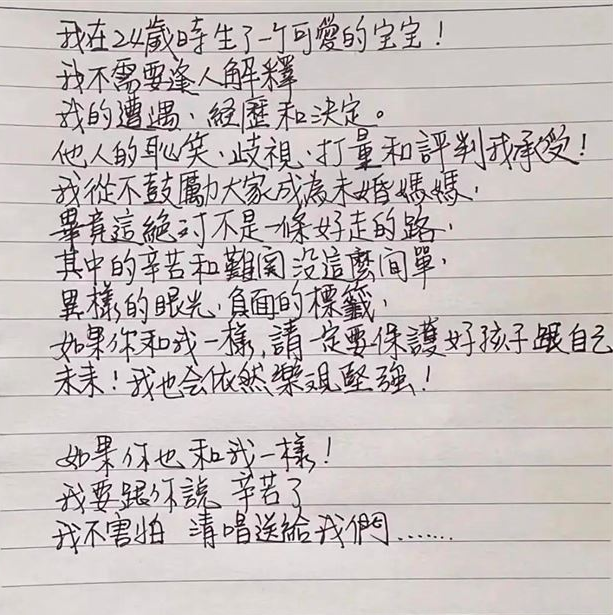 我在24歲時生了一个可愛的宝宝！
我不需要逢人解釋
我的遭遇、經歷和決定。
他人的恥笑、歧視、打量和評判我承受！
我從不鼓勵大家成為未婚媽媽，
畢竟這絕对不是一條好走的路，
其中的辛苦和難関没這麼间單，
異樣的眼光、負面的標籤，
如果你和我一樣，請一定要保護好孩子跟自己
未来！我也会依然樂观堅強！
如果你也和我一樣！
我要跟你說 辛苦了
我不害怕 清唱送給我們……